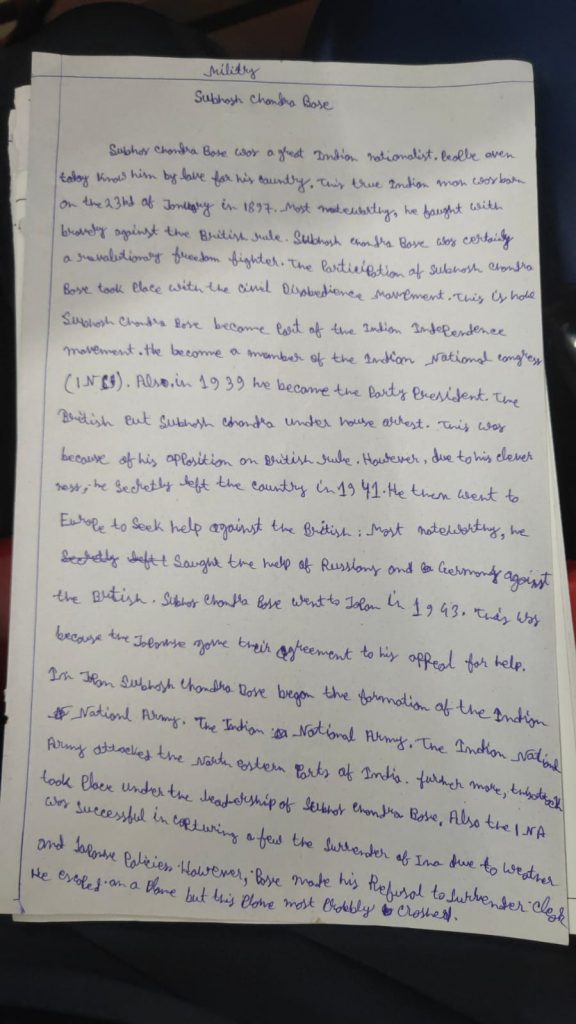 Militry
Subhosh Chondra Bose
Subhos Chondra Bose wos a great Indian nationalist. People even
today know him by love for his country. This true Indian mon wos born
on the 23rd of January in 1897. Most noteworthy, he fought with
bravery against the British rule. Subhosh chondra Bose wos certainly
a revolutionary freedom fighter. The Participation of Subhosh Chondra
Bose took Place with the civil Disobedience Movement. This is how
Subhosh Chondra Bose became Part of the Indian Independence
movement. He become a member of the Indian National congress
(INC). Also, in 1939 he became the Party President. The
British Put Subhosh Chondra under house arrest. This wos
because of his opposition on British rule. However, due to his clever
ness, he Secretly left the country in 1941. He then went to
Europe to Seek help against the British. Most noteworthy, he
Secretly left Saught the help of Russions and Germons against
the British. Subhos Chondra Bose went to Japan in 1943. This wos
because the Japanese gave their agreement to his appeal for help.
In Japan Subhosh Chondra Bose began the formation of the Indian
National Army. The Indian National Army. The Indian National
Army attacked the North eastern Parts of India. further more, this attack
took Place under the leadership of Subhos Chondra Bose. Also the INA
wos Successful in capturing a few the Surrender of Ina due to weather
and Japanese Policies. However, Bose made his Refusal to Surrender clear
He escaped on a Plane but this Plane most Probably croshed.